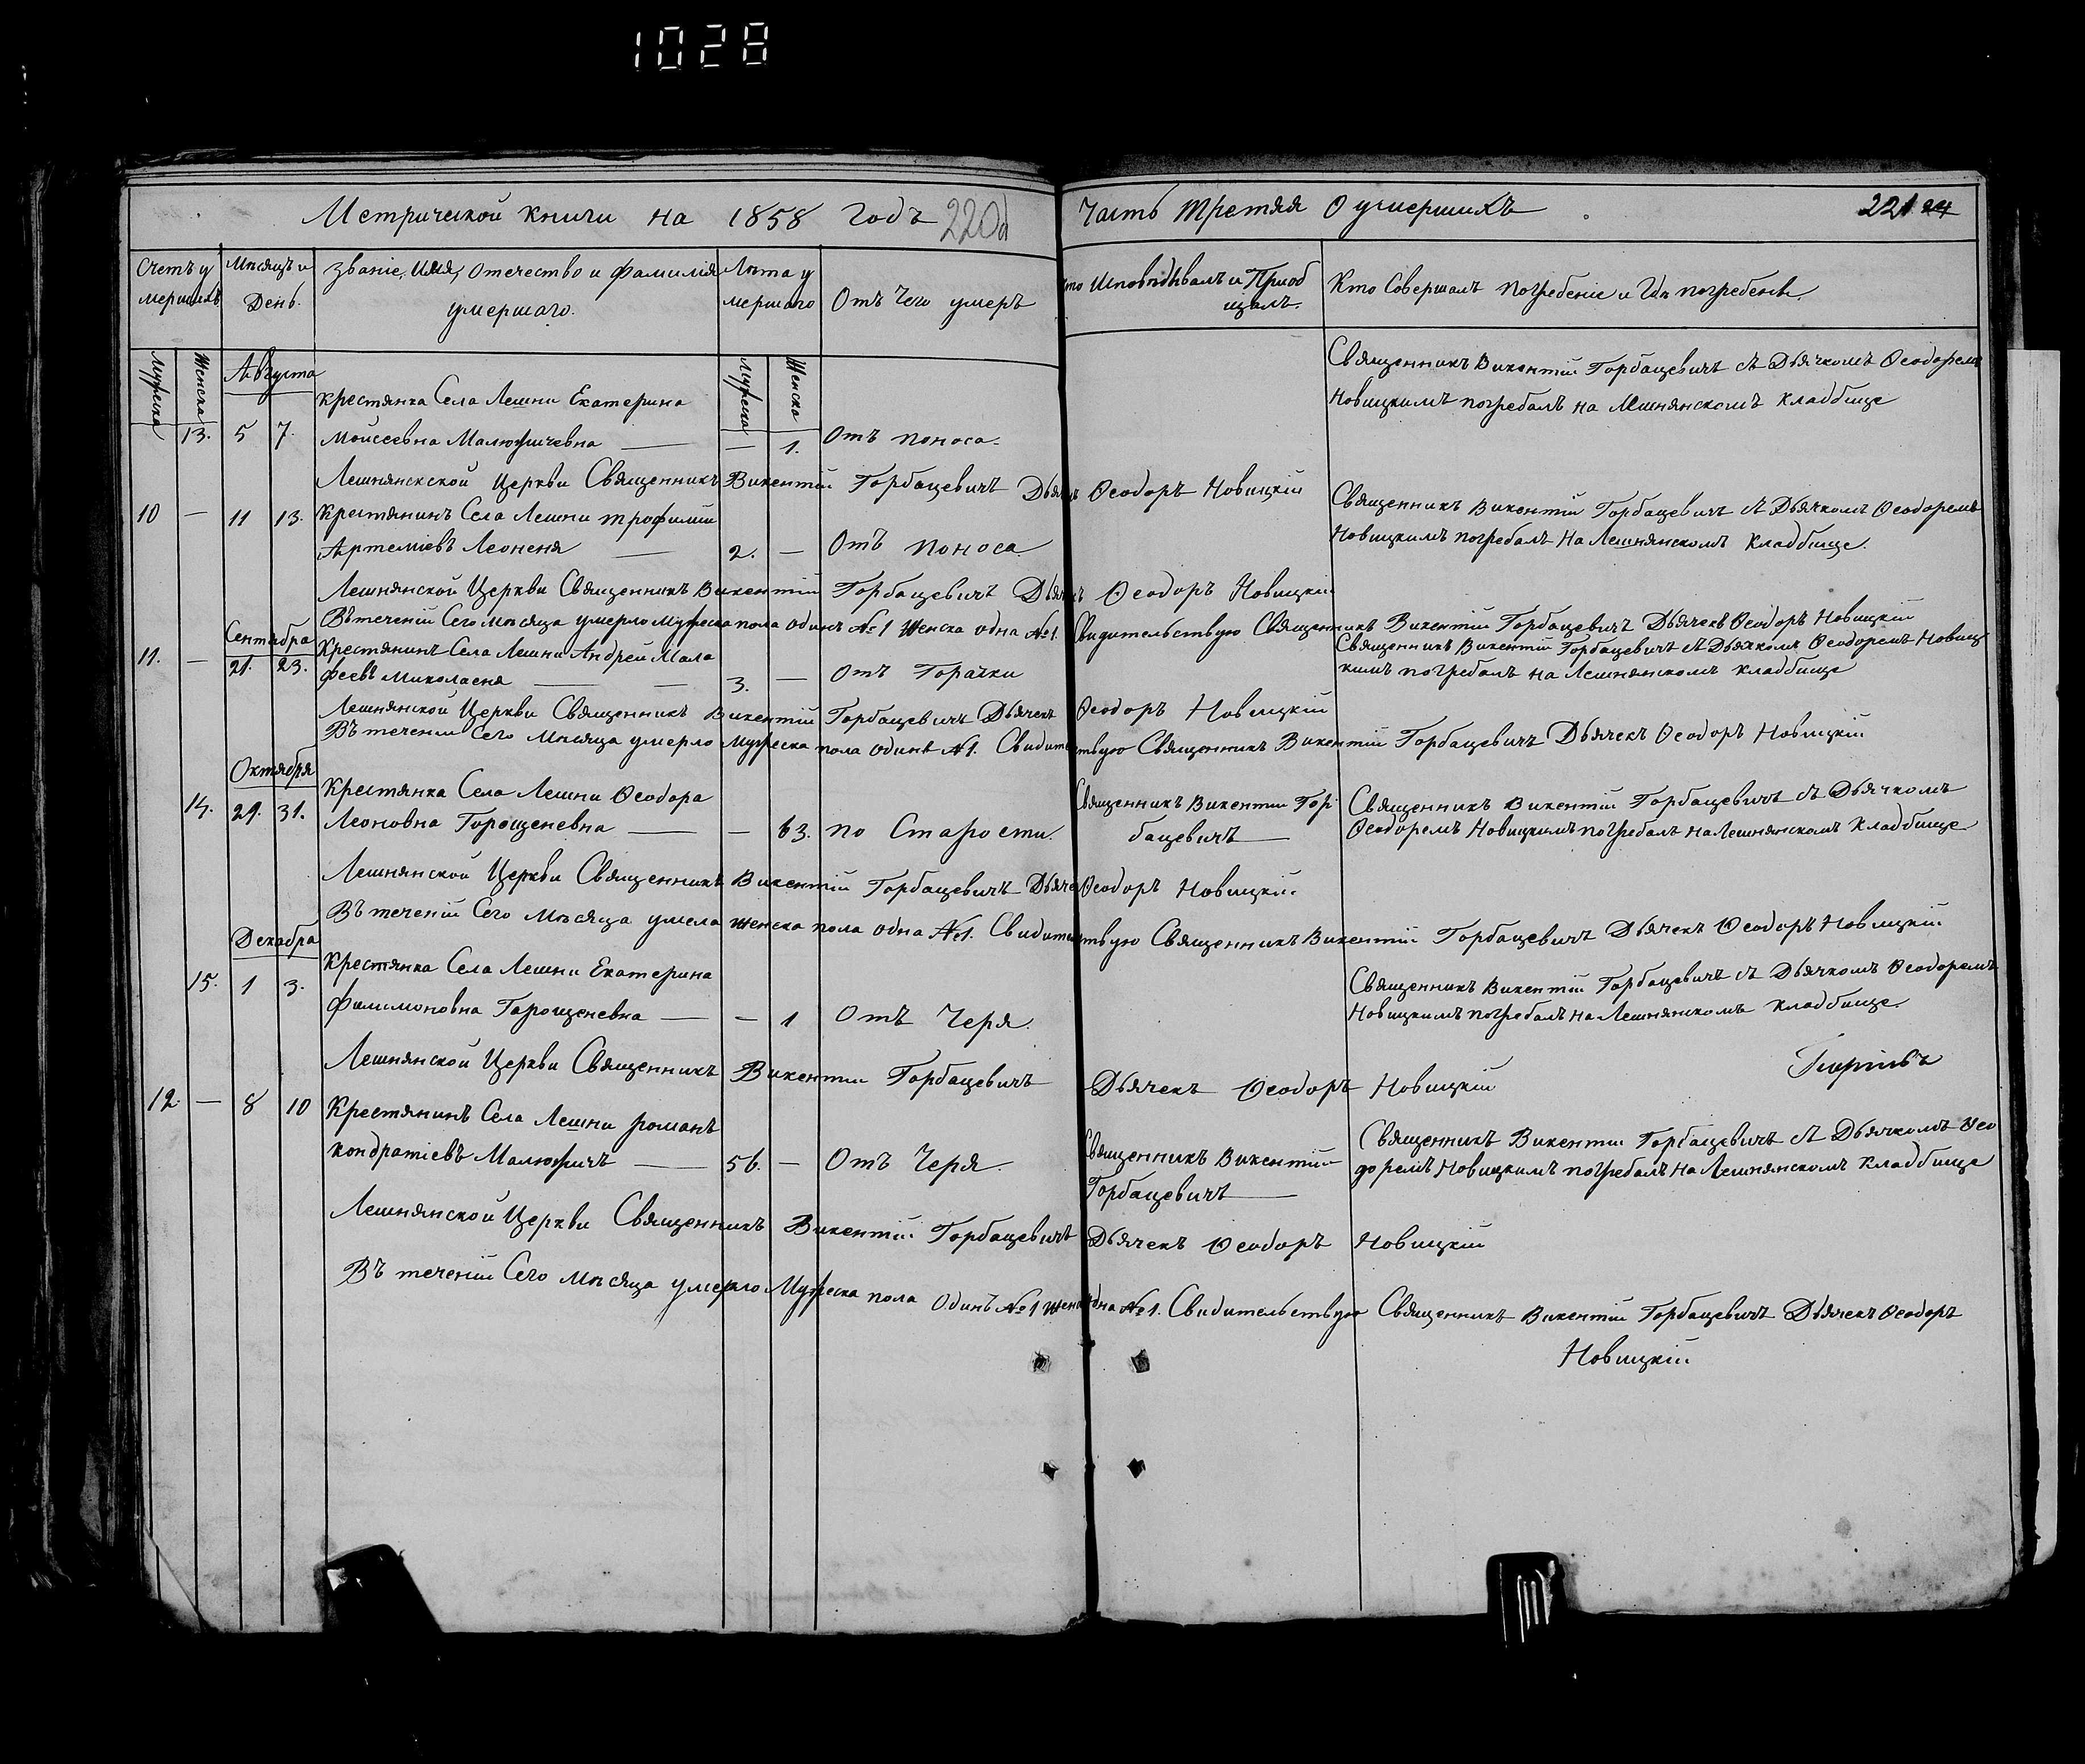 1028
Метрической книги на 1858 годъ 220об
Часть третяя о умершихъ
221 24
Счетъ у
мершихъ
Мѣсяцъ и
День.
Званіе, Имя, Отечество и Фамилія
умершаго.
Лѣта у
мершаго
Отъ Чего умеръ
Кто Исповѣдывалъ и Приоб
щалъ.
Кто Совершалъ погребеніе и Гдѣ погребены.
Мужеска
Женска
Августа
Мужеска
Женска
Крестянка Села Лешни Екатерина
13. 5 7. Моисеевна Малюжичевна — — 1. Отъ поноса.
Священникъ Викентій Горбацевичъ съ Дьячкомъ Ѳеодоромъ
Новицкимъ погребалъ на Лешнянскомъ Кладбище
Лешнянской Церкви Священникъ Викентій Горбацевичъ Дьячекъ Ѳеодоръ Новицкій
10 — 11 13. Крестянинъ Села Лешни Трофимъ
Артеміевъ Леоненя — 2. — Отъ поноса
Священникъ Викентій Горбацевичъ съ Дьячкомъ Ѳеодоремъ
Новицкимъ погребалъ На Лешнянскомъ Кладбище.
Лешнянской Церкви Священникъ Викентій Горбацевичъ Дьячекъ Ѳеодоръ Новицкій
Въ теченіи Сего Мѣсяца умерло Мужеска пола одинъ №1 Женска одна №1. Свидительствую Священникъ Викентій Горбацевичъ Дьячекъ Ѳеодоръ Новицкій
Сентабра
11. — 21. 23. Крестянинъ Села Лешни Андрей Мала
феевъ Миколаеня — — 3. — Отъ Горачки
Священникъ Викентій Горбацевичъ съ Дьячкомъ Ѳеодоремъ Новиц
кимъ погребалъ на Лешнянскомъ Кладбище
Лешнянской Церкви Священникъ Викентій Горбацевичъ Дьячекъ Ѳеодоръ Новицкій
Въ теченіи Сего Мѣсяца умерло Мужеска пола одинъ №1. Свидительствую Священникъ Викентій Горбацевичъ Дьячекъ Ѳеодоръ Новицкій
Октабря
Крестянка Села Лешни Ѳеодора
14. 29. 31. Леоновна Горощеневна — — 63. по Старости.
Священникъ Викентій Гор
бацевичъ —
Священникъ Викентій Горбацевичъ съ Дьячкомъ
Ѳеодоремъ Новицкимъ погребалъ на Лешнянскомъ Кладбище
Лешнянской Церкви Священникъ Викентій Горбацевичъ Дьячекъ Ѳеодоръ Новицкій.
Въ теченіи Сего Мѣсяца умела женска пола одна №1. Свидительствую Священникъ Викентій Горбацевичъ Дьячекъ Ѳеодоръ Новицкій
Декабра
Крестянка Села Лешни Екатерина
15. 1 3. Филимоновна Горощеневна — — 1 Отъ Черя.
Священникъ Викентій Горбацевичъ съ Дьячкомъ Ѳеодоремъ
Новицкимъ погребалъ на Лешнянскомъ Кладбище.
Лешнянской Церкви Священникъ Викентій Горбацевичъ Дьячекъ Ѳеодоръ Новицкій
12. — 8 10 Крестянинъ Села Лешни Романъ
Кондратіевъ Малюжичъ — 56. — Отъ Черя.
Священникъ Викентій
Горбацевичъ —
Священникъ Викентій Горбацевичъ съ Дьячкомъ Ѳео
доремъ Новицкимъ погребалъ на Лешнянскомъ Кладбище
Лешнянской Церкви Священникъ Викентій Горбацевичъ Дьячекъ Ѳеодоръ Новицкій
Въ теченіи Сего Мѣсяца умерло Мужеска пола Одинъ №1 Женска одна №1. Свидительствую Священникъ Викентій Горбацевичъ Дьячекъ Ѳеодоръ
Новицкій.